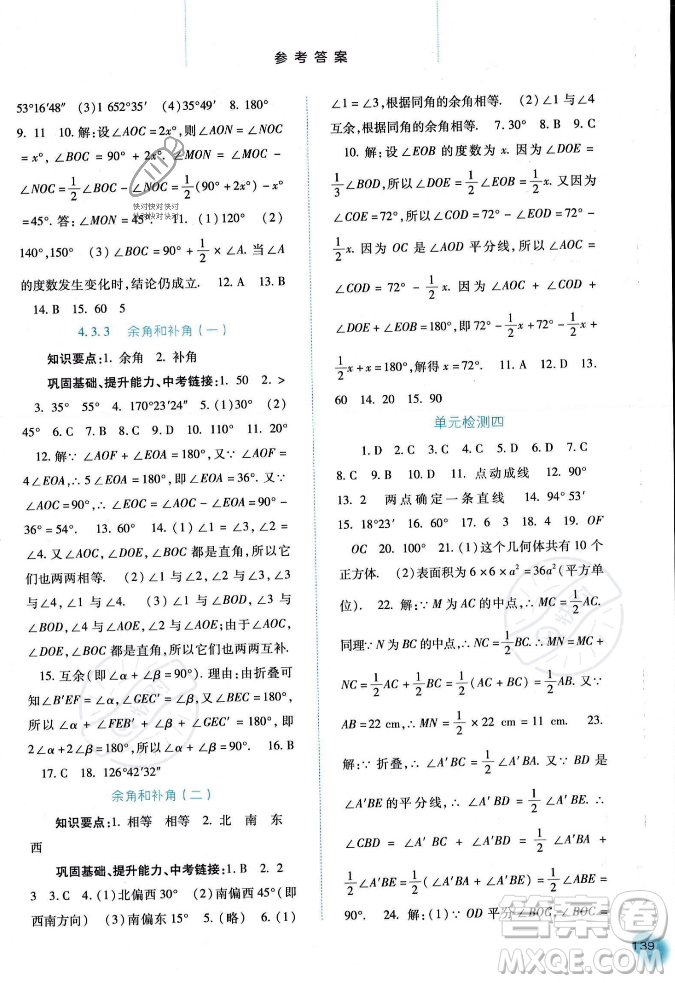 参考答案
53°16′48″ (3)1 652°35′ (4)35°49′ 8. 180°
9. 11 10. 解:设∠AOC=2x°,则∠AON=∠NOC
=x°,∠BOC=90°+2x°.∠MON=∠MOC-
∠NOC=1/2∠BOC-∠NOC=1/2(90°+2x°)-x°
=45°. 答:∠MON=45°. 11. (1)120° (2)
140°,150° (3)∠BOC=90°+1/2×∠A. 当∠A
的度数发生变化时,结论仍成立. 12. A 13. B
14. B 15. 60 5
4.3.3 余角和补角(一)
知识要点:1. 余角 2. 补角
巩固基础、提升能力、中考链接:1. 50 2. >
3. 35° 55° 4. 170°23′24″ 5. (1)30° (2)
45° 6. C 7. D 8. D 9. B 10. C 11. D
12. 解:∵∠AOF+∠EOA=180°,∠AOF=
4∠EOA,∴5∠EOA=180°,即∠EOA=36°. 又∵
∠AOC=∠EOC=90°,∴∠AOC-∠EOA=90°-
36°=54°. 13. 60° 14. (1)∠1=∠3,∠2=
∠4. 又∵∠AOC,∠DOE,∠BOC都是直角,所以它
们也两两相等. (2)∠1与∠2,∠2与∠3,∠3与
∠4,∠4与∠1. (3)∠1与∠BOD,∠3与∠BOD,
∠2与∠AOE,∠4与∠AOE互补;由于∠AOC,
∠DOE,∠BOC都是直角,所以它们也两两互补.
15. 互余(即∠α+∠β=90°). 理由:由折叠可
知∠B′EF=∠α,∠GEC′=∠β,∠FEG=90°,所
以∠α+∠FEB′+∠GEC′+∠β=180°,即
2∠α+2∠β=180°,所以∠α+∠β=90°. 16. B
17. C 18. 126°42′32″
余角和补角(二)
知识要点:1. 相等 相等 2. 北 南 东
西
巩固基础、提升能力、中考链接:1. B 2. 2
3 3. C 4. (1)北偏西30° (2)南偏西45°(即
西南方向) (3)南偏东15° 5. (略) 6. (1)
∠1=∠3,根据同角的余角相等. (2)∠1与∠4
互余,根据同角的余角相等. 7. 30° 8. B 9. C
10. 解:设∠EOB的度数为x. 因为∠DOE=
1/3∠BOD,所以∠DOE=1/2∠EOB=1/2x. 又因为
∠COE=72°,所以∠COD=72°-∠DOE=72°-
1/2x. 因为OC是∠AOD平分线,所以∠AOC=
∠COD=72°-1/2x. 因为∠AOC+∠COD+
∠DOE+∠EOB=180°,所以72°-1/2x+72°-1/2x+
1/2x+x=180°,解得x=72°. 11. A 12. D 13.
60 14. 20 15. 90
单元检测四
1. D 2. D 3. C 4. C 5. C 6. B 7. C
8. C 9. B 10. D 11. 点动成线 12. 90°
13. 2 两点确定一条直线 14. 94°53′
15. 18°23′ 16. 60° 17. 6 18. 4 19. OF
OC 20. 100° 21. (1)这个几何体共有10个
正方体. (2)表面积为6×6×a²=36a²(平方单
位). 22. 解:∵M为AC的中点,∴MC=1/2AC.
同理∵N为BC的中点,∴NC=1/2BC,∴MN=MC+
NC=1/2AC+1/2BC=1/2(AC+BC)=1/2AB. 又∵
AB=22 cm,∴MN=1/2×22 cm=11 cm. 23.
解:∵折叠,∴∠A′BC=1/2∠A′BA. 又∵BD是
∠A′BE的平分线,∴∠A′BD=1/2∠A′BE,所以
∠CBD=∠A′BC+∠A′BD=1/2∠A′BA+
1/2∠A′BE=1/2(∠A′BA+∠A′BE)=1/2×180°=
90°. 24. 解:(1)∵OD平分∠BOC,∠BOC=
139
快对快对快对
快对快对快对
答案圈
MXQE.COM